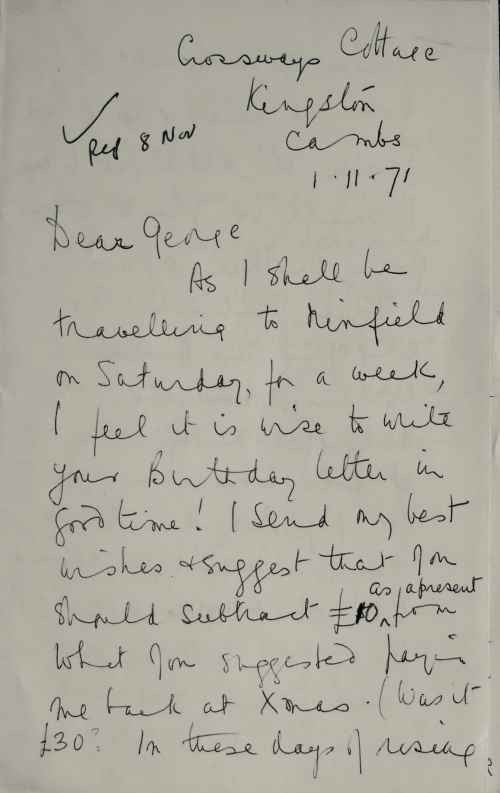 Crossways Cottage
Kingston
Cambs
1.11.71
Rep 8 Nov
Dear George
As I shall be
travelling to Ninfield
on Saturday, for a week,
I feel it is wise to write
your Birthday letter in
good time! I send my best
wishes & suggest that you
should subtract £10 as a present from
what you suggested paying
me back at Xmas. (Was it
£30? In these days of rising